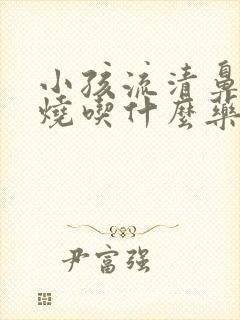 小孩流清鼻
燒喫什麼藥
尹富强